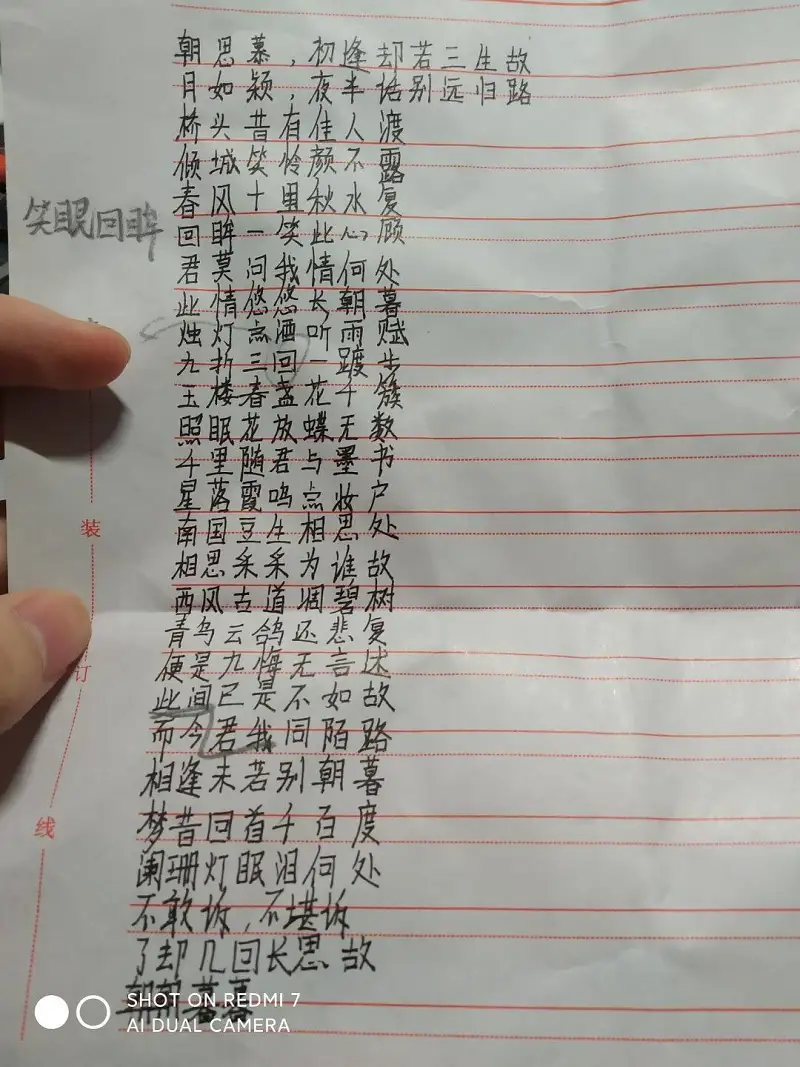 朝思慕，初逢却若三生故
月如颖，夜半话别远归路
桥头昔有佳人渡
倾城笑怜颜不露
春风十里秋水复
笑眼回眸
回眸一笑此心顾
君莫问我情何处
此情悠悠长朝暮
烛灯点酒听雨赋
九折三回一踱步
玉楼春盏花千簇
照眠花放蝶无数
千里随君与墨书
星落霞鸣点妆户
南国豆生相思处
装
相思采采为谁故
西风古道凋碧树
青鸟云鸽还悲复
便是九悔无言述
订
此间已是不如故
而今君我同陌路
相逢未若别朝暮
梦昔回首千百度
线
阑珊灯眼泪何处
不敢诉，不堪诉
了却几回长思故
朝朝暮暮
SHOT ON REDMI 7
AI DUAL CAMERA